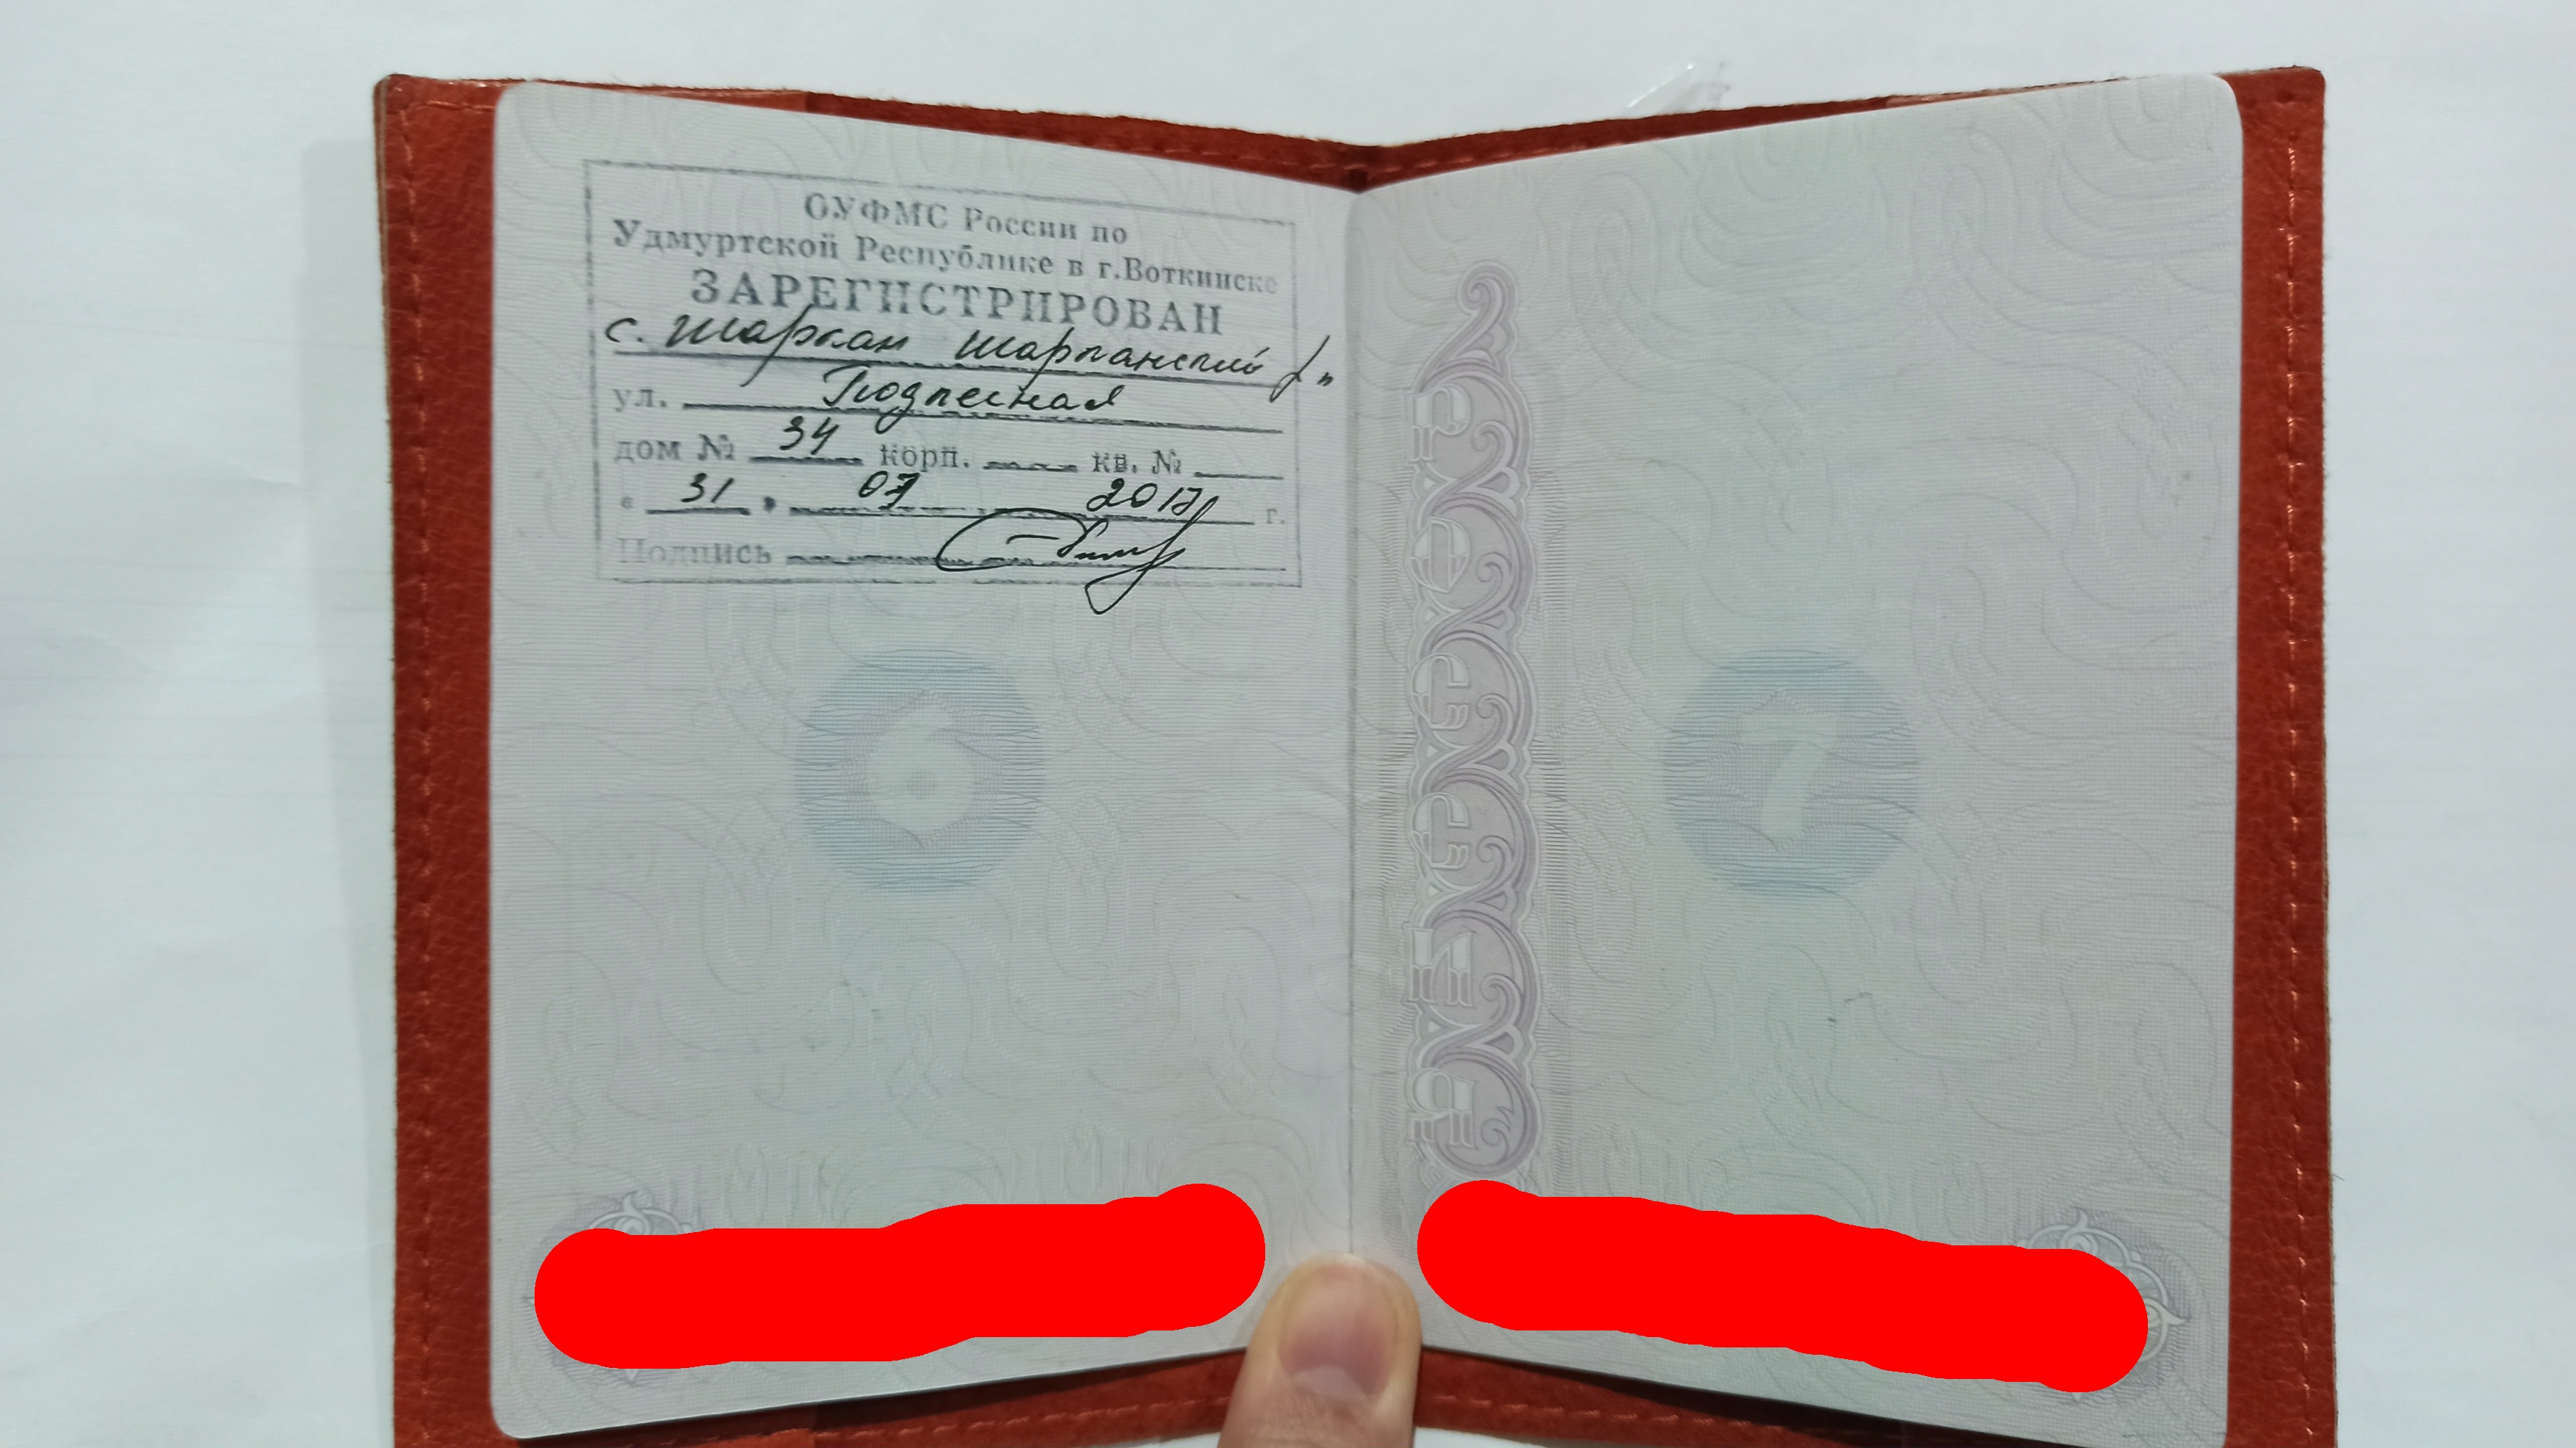 ОУФМС России по
Удмуртской Республике в г.Воткинске
ЗАРЕГИСТРИРОВАН
с. Шаркан Шарканский р-н
ул. Подлесная
дом № 34 корп. кв. №
« 31 » 07 2017 г.
Подпись
6
7
РОССИЯ